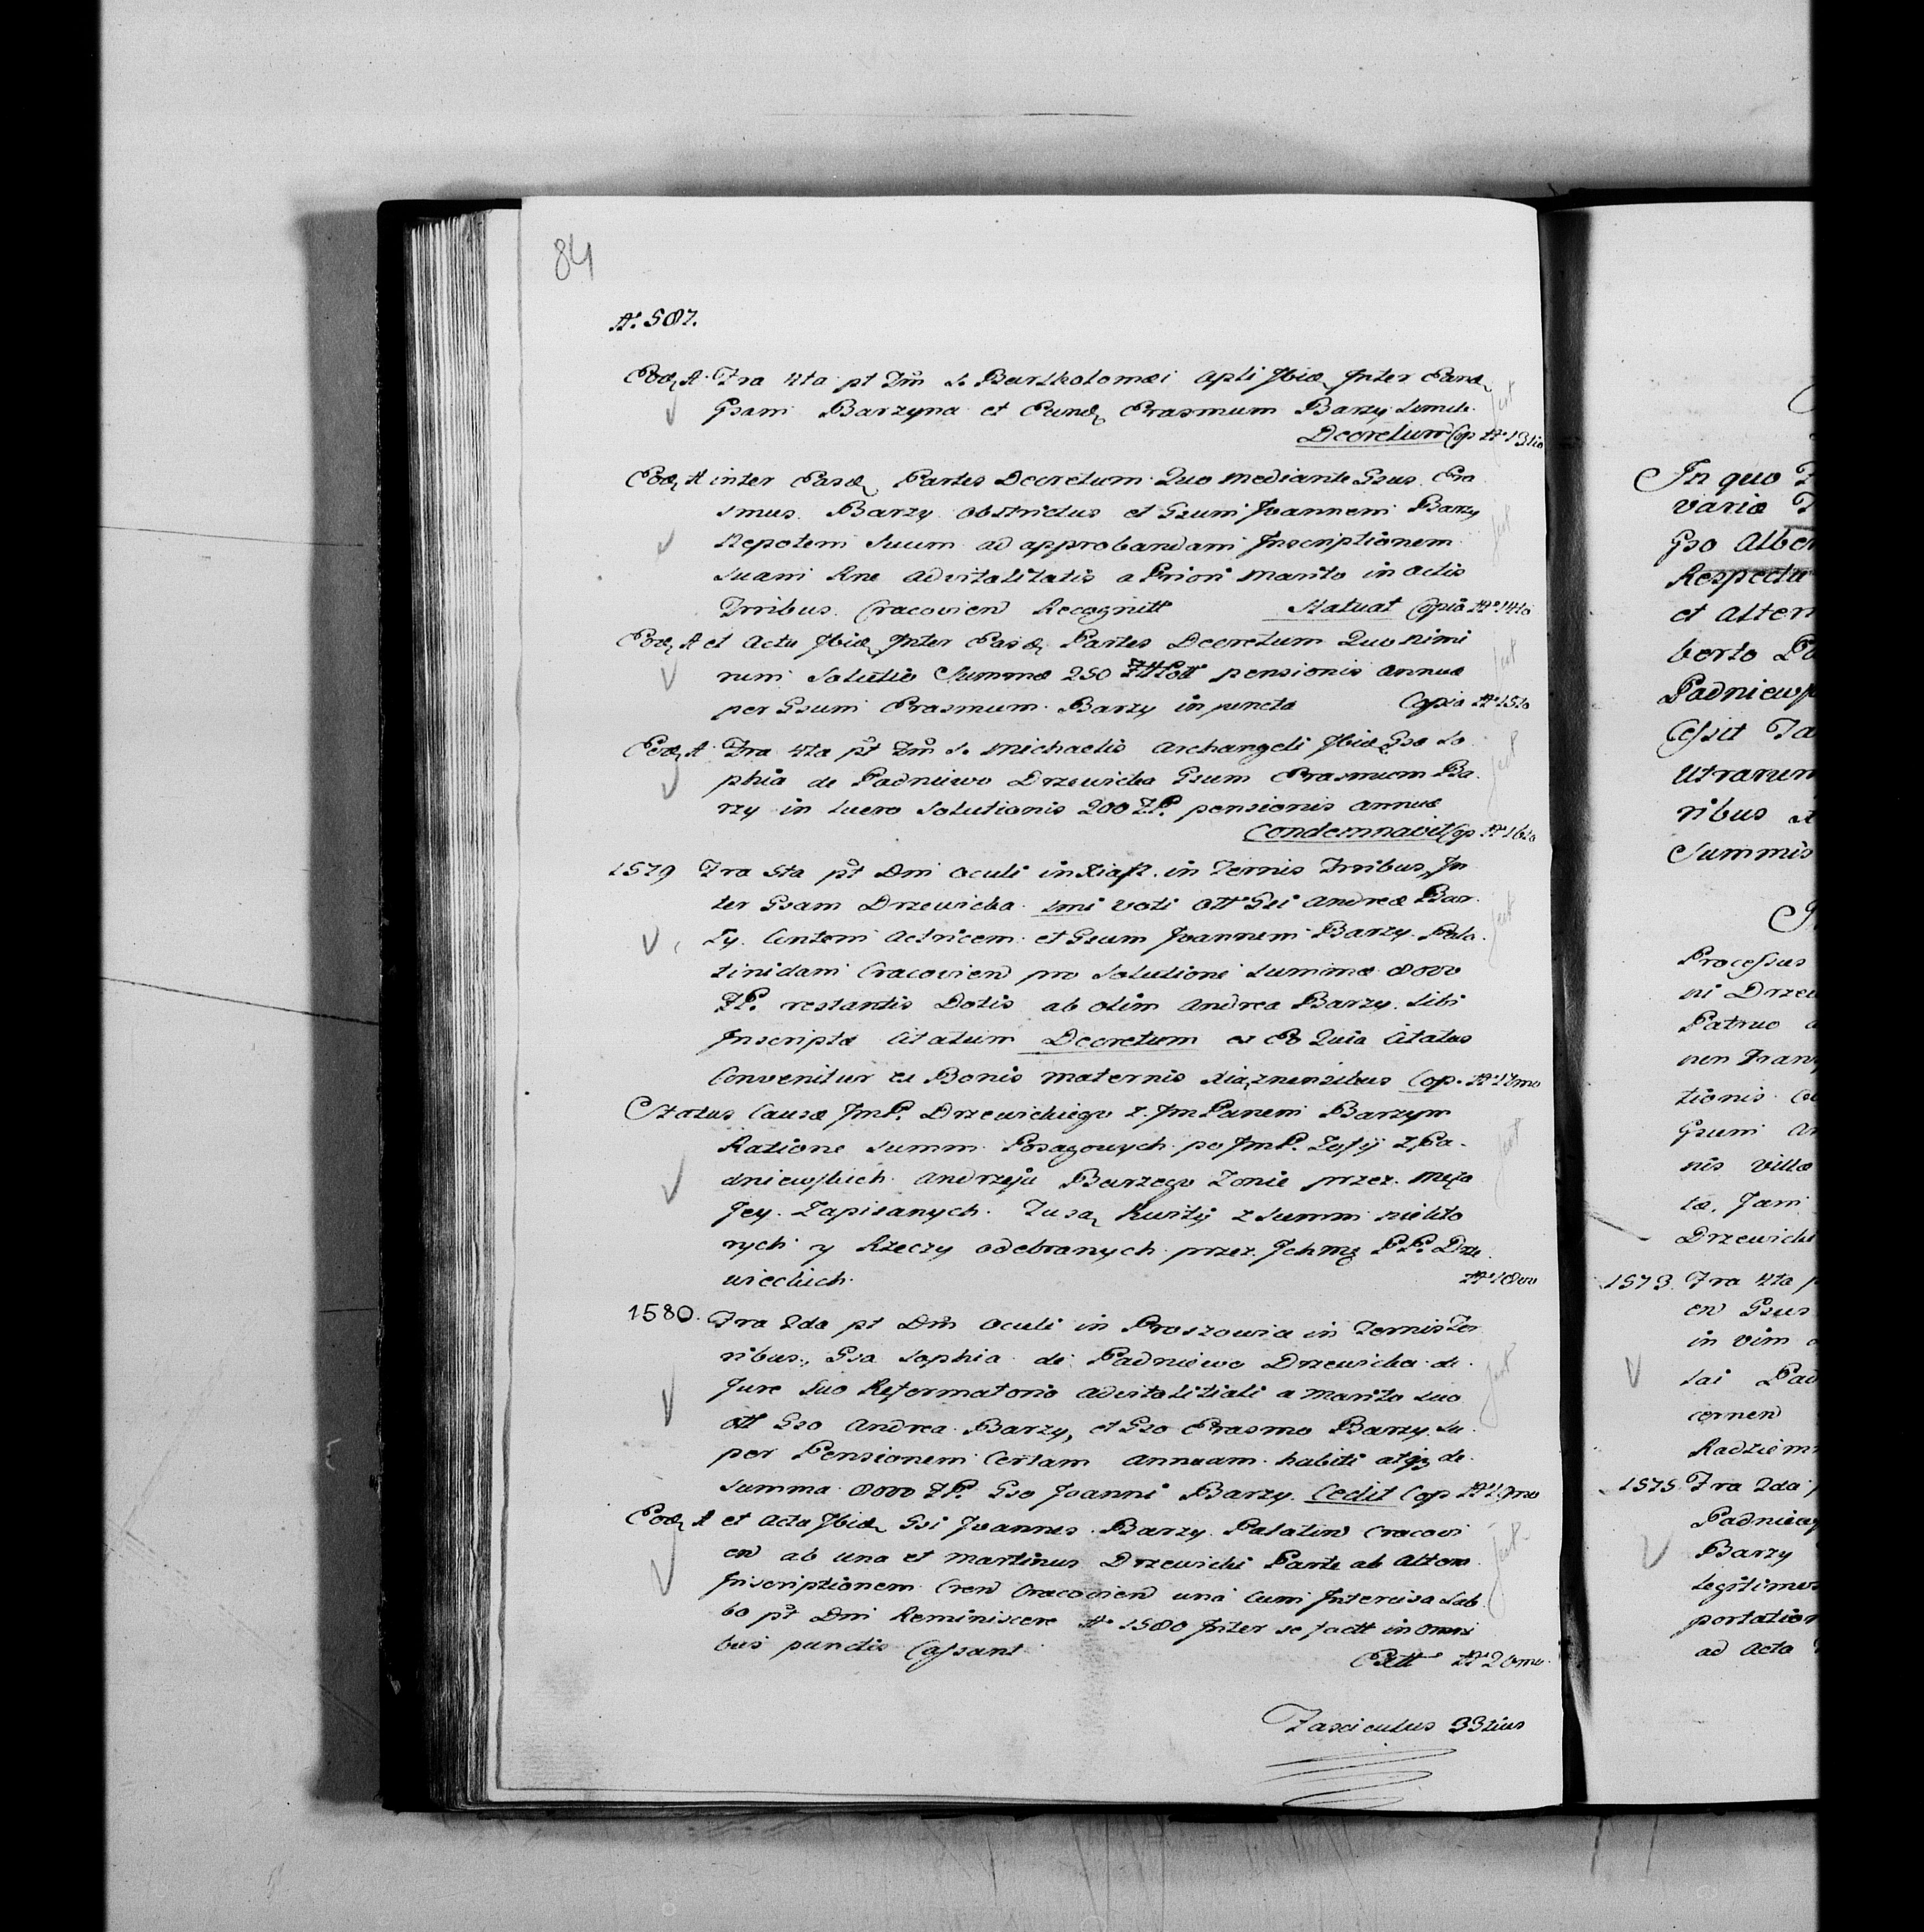 84
A° 587.
Eod, A° Fra 4ta pt Dm S. Bartholomæi Apli Ibid, Inter Eand,
Gsam Barzyna et Eund, Erasmum Barzy Simile
Decretum Cop N° 13tio
Eod, A inter Easd, Partes Decretum Quo mediante Gsus Era
smus Barzy obstrictus et Gsum Joannem Barzy
Nepotem suum ad approbandam Inscriptionem
suam Rne advitalitatis a Priori Marito in Actis
Trribus Cracovien Recognitt Statuat Copia N° 14to
Eod, A et Actu Ibid, Inter Easd, Partes Decretum Quo nimi
rum Solutio Summæ 250 pensionis annuæ
per Gsum Erasmum Barzy in puncto Copia N° 15to
Eod, A Fra 4ta pt Dm S. Michaelis Archangeli Ibid, Gsa So
phia de Padniewo Drzewicka Gsum Erasmum Ba
rzy in Lucro Solutionis 200 FP. pensionis annuæ
Condemnavit Cop N° 16to
1579 Fra 5ta pt Dm Oculi in Xiąż. in Ternis Trribus, In
ter Gsam Drzewicka 1mi voti Gsi Andreæ Bar
zy Contem Actricem et Gsum Joannem Barzy Pala
tinidam Cracovien pro Solutione Summæ 8000
FP. restantis Dotis ab olim Andrea Barzy Sibi
Inscriptæ Citatum Decretum ex Eo Quia Citatus
Convenitur ex Bonis maternis Xiąznensibus Cop. N° 17mo
Status Causæ JmP. Drzewickiego z JmPanem Barzym
Ratione Summ Posagowych po JmP. Zofij z Pa-
dniewskich Andrzeja Barzego Żonie przez Męża
Jey Zapisanych. Tu są, Kwity z Summ niekto
rych y Rzeczy odebranych przez Jchmę PP. Drze
wieckich N° 18vo
1580. Fra 2da pt Dm Oculi in Proszowia in Ternis Ter
ribus, Gsa Sophia de Padniewo Drzewicka de
Jure suo Reformatorio advitalitiali a Marito suo
Gso Andrea Barzy, et Gso Erasmo Barzy Su
per Pensionem Certam annuam habiti atq de
Summa 8000 FP. Gso Joanni Barzy Cedit Cop N° 19no
Eod, A et Acta Ibid, Gsi Joannes Barzy Palatin Cracovi
en ab una et Martinus Drzewicki Parte ab Altera
Inscriptionem Cren Cracovien una Cum Intercisa Sab
bo pt Dm Reminiscere A° 1580 Inter se factt in omni
bus punctis Cassant Extt N° 20mo
Fasciculus 33tius
In quo
variæ
Gso Alber
Respectu
et Alter
berto
Padniewsk
Cessit
Utrarum
ribus
Summis
Processus
ni Drzew
Patruo
tionis
Gsum
nis villæ
tæ, Jam
Drzewicki
1573. Fra 4ta
en Gsus
in vim
sai Pad
cernen
Radziem
1575. Fra 2da
Padniew
Barzy
Legitimus
portation
ad Acta